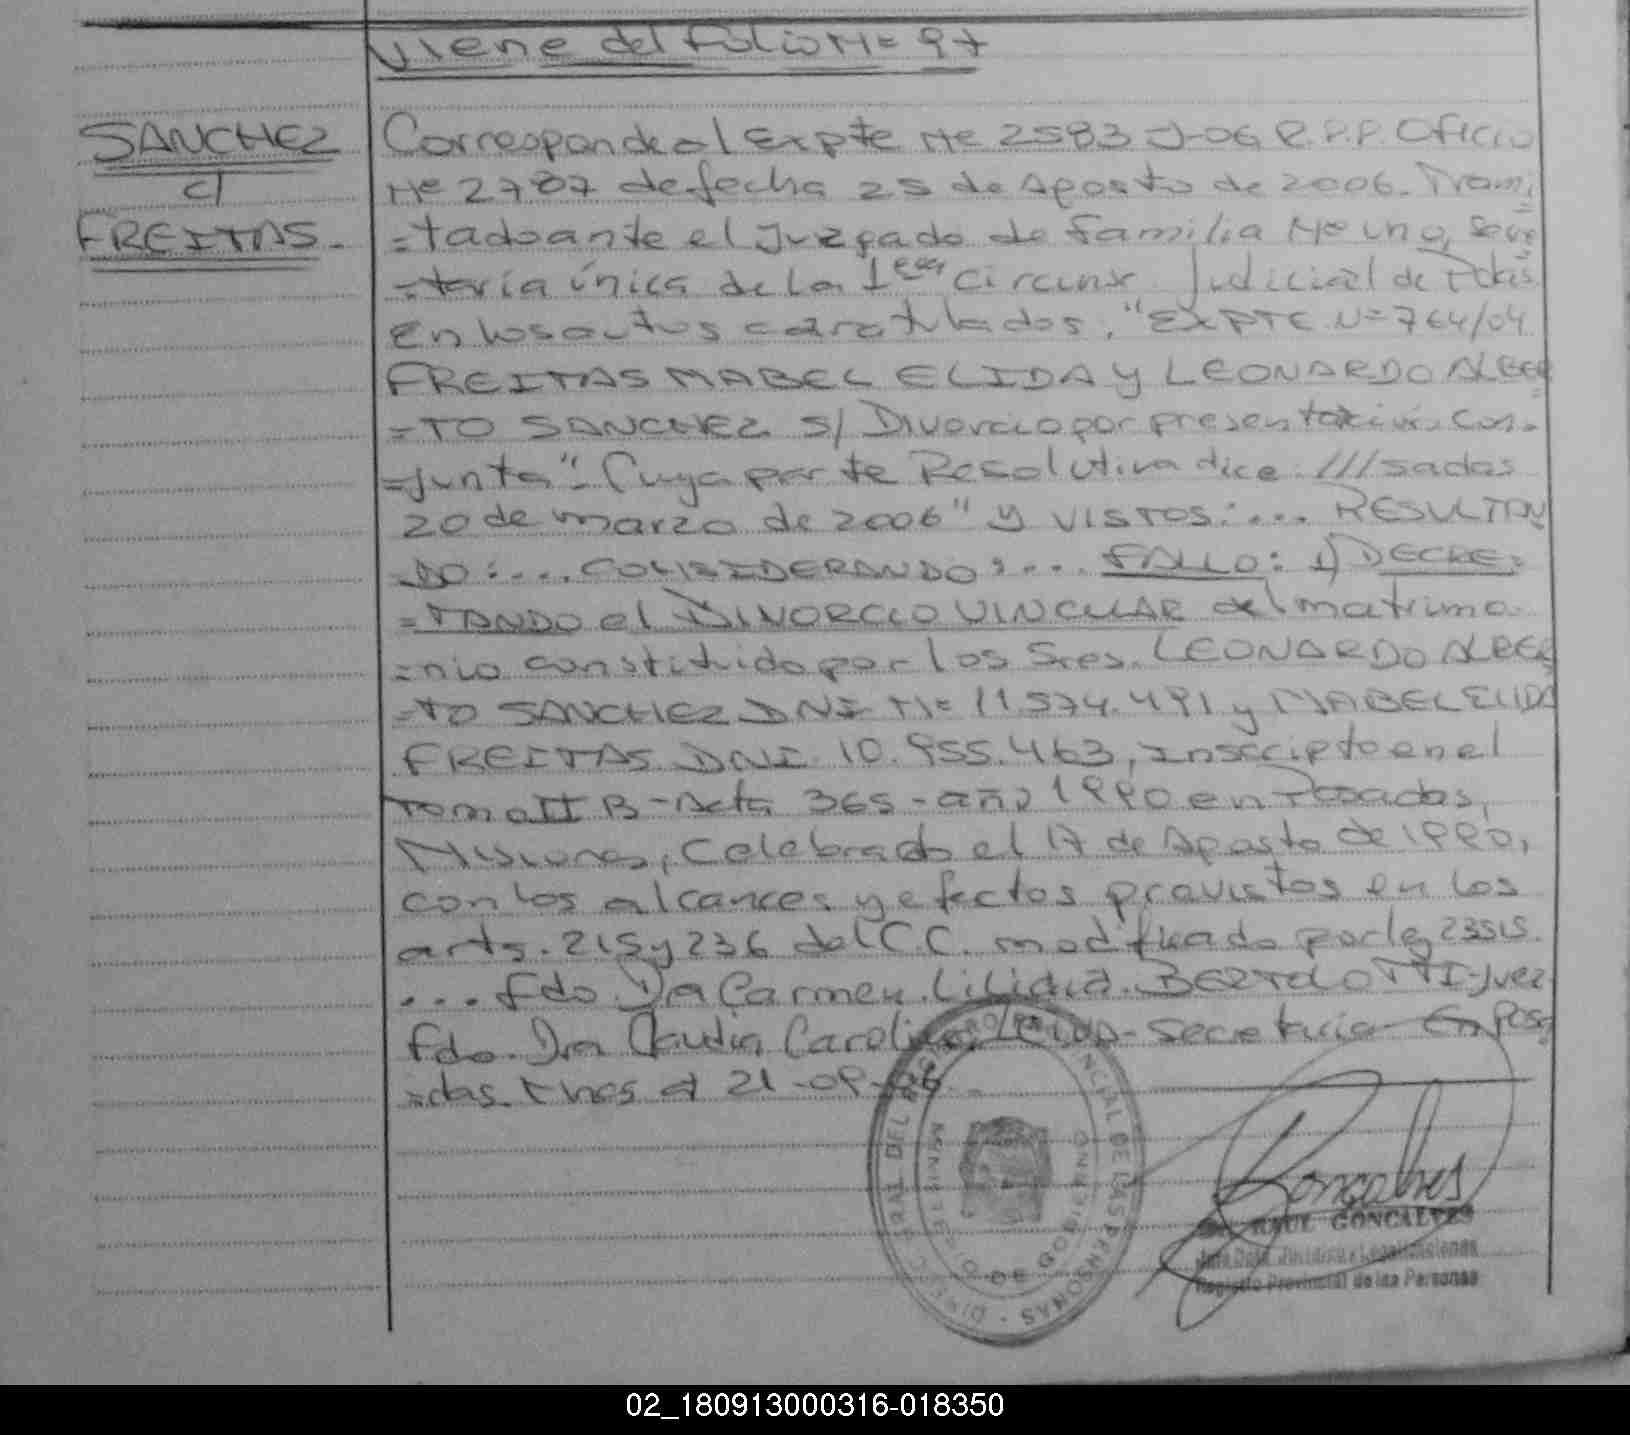 viene del folio Nº 97
SANCHEZ
c/
FREITAS.-
Corresponde al Expte Nº 2583-J-06 R.P.P. Oficio
Nº 2787 de fecha 25 de Agosto de 2006. Trami
=tado ante el Juzgado de Familia Nº uno, Secre
=taría única de la 1era Circuns. Judicial de Pdas.
en los autos caratulados: "EXPTE Nº 764/04
FREITAS MABEL ELIDA Y LEONARDO ALBER
=TO SANCHEZ S/ Divorcio por presentación Con=
=junta": Cuya parte Resolutiva dice: ///sadas
20 de marzo de 2006" y VISTOS:... RESULTAN
DO:... CONSIDERANDO:... FALLO: 1) DECRE=
=TANDO el DIVORCIO VINCULAR del matrimo
=nio constituido por los Sres. LEONARDO ALBER
=TO SANCHEZ DNI Nº 11.574.491 y MABEL ELIDA
FREITAS DNI 10.955.463, Inscripto en el
Tomo II B - Acta 365 - año 1990 en Posadas,
Misiones, Celebrado el 17 de Agosto de 1990,
con los alcances y efectos previstos en los
arts. 215 y 236 del C.C. modificado por ley 23515.
... Fdo. Dra Carmen Lilidia BERTOLOTTI-Juez
Fdo. Dra Claudia Carolina - Secretaria - En Posa
=das, Mnes a 21-09-06
DIREC. GRAL DEL REGISTRO PROVINCIAL DE LAS PERSONAS
MINISTERIO DE GOBIERNO
Goncalves
RAUL GONCALVES
Jefe Dpto. Jurídico y Legalizaciones
Registro Provincial de las Personas
02_180913000316-018350